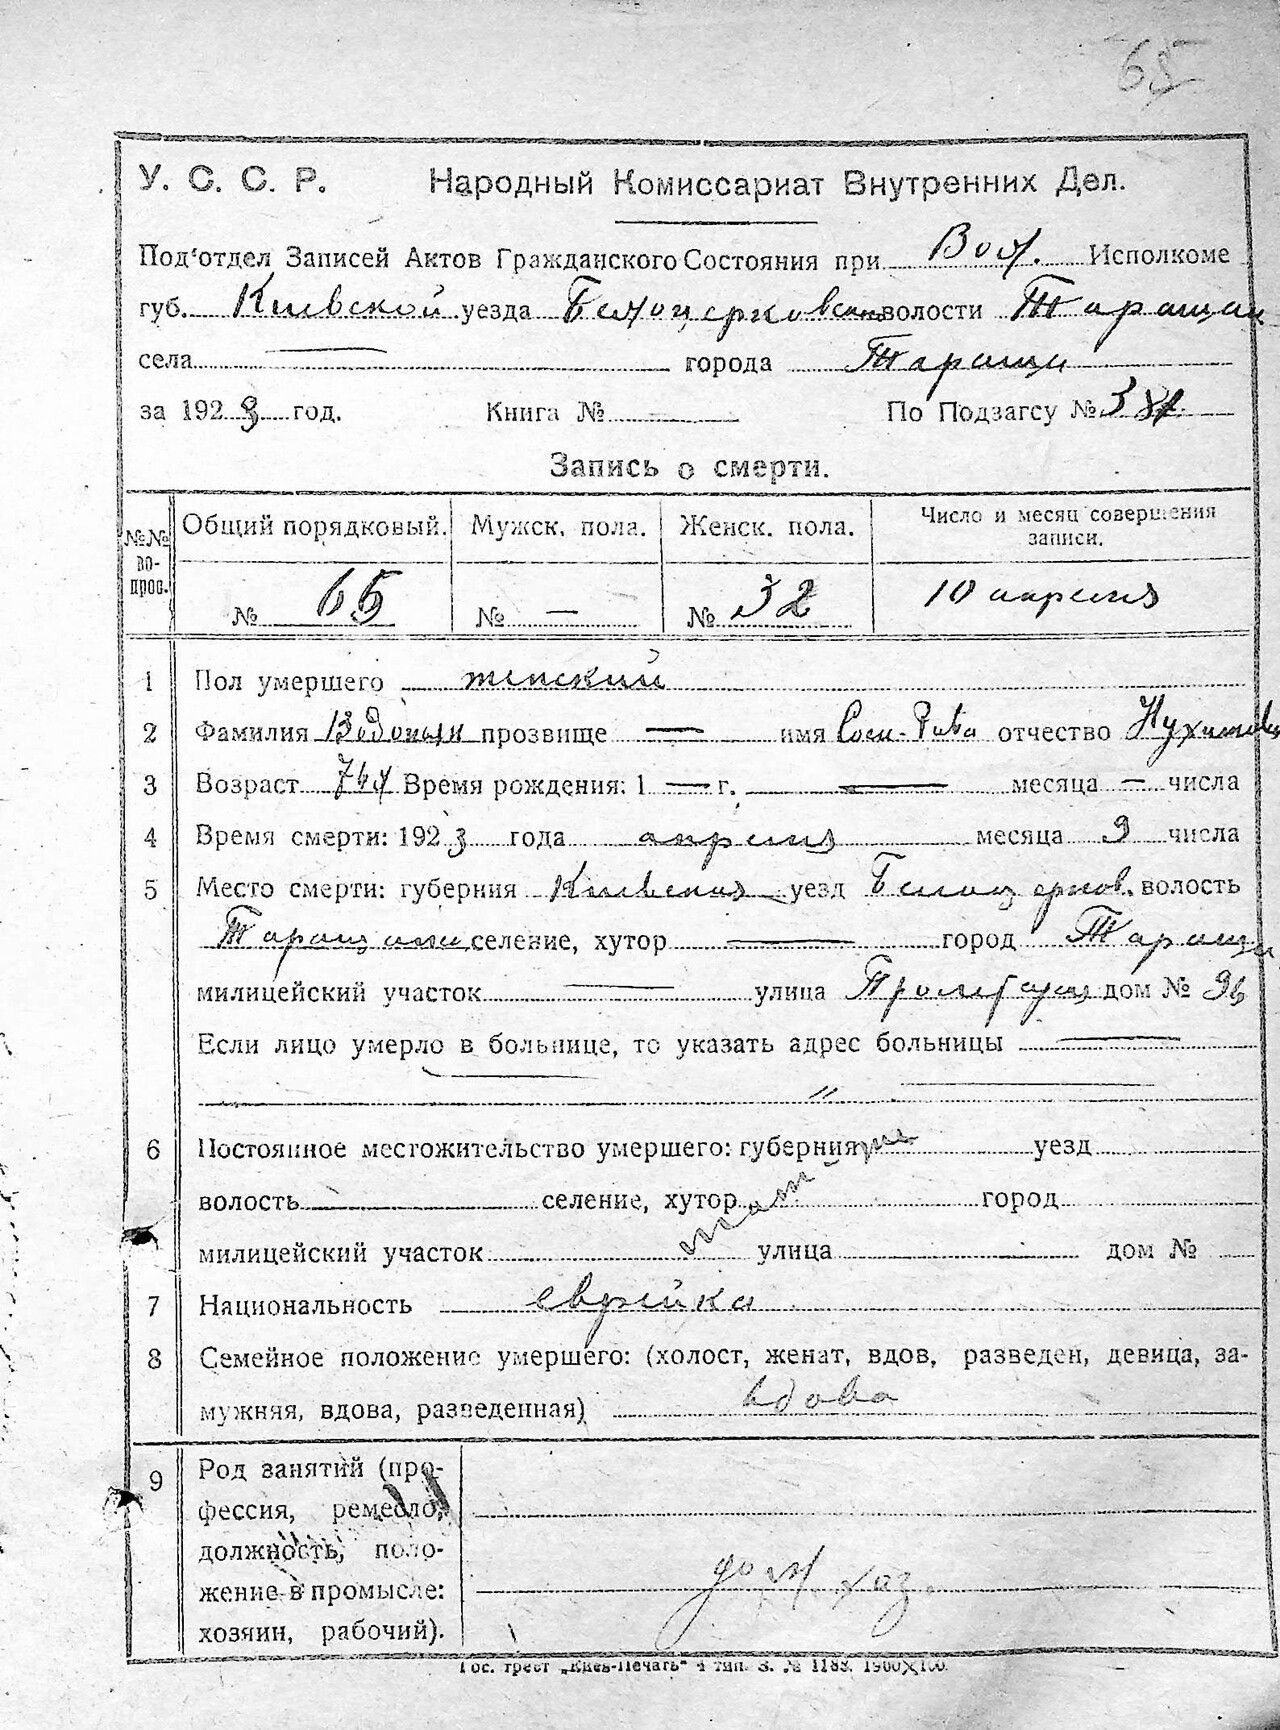 65
У. С. С. Р. Народный Комиссариат Внутренних Дел.
Под'отдел Записей Актов Гражданского Состояния при Вол. Исполкоме
губ. Киевской уезда Белоцерковск волости Таращан
села — города Таращи
за 1923 год. Книга № По Подзагсу №
Запись о смерти.
№№ во- прос. Общий порядковый. Мужск. пола. Женск. пола. Число и месяц совершения записи.
№ 65 № — № 32 10 апреля
1 Пол умершего женский
2 Фамилия прозвище — имя отчество
3 Возраст Время рождения: 1 — г. — месяца — числа
4 Время смерти: 1923 года апреля месяца 9 числа
5 Место смерти: губерния Киевская уезд Белоцерков. волость
селение, хутор — город Таращ
милицейский участок — улица дом № 96
Если лицо умерло в больнице, то указать адрес больницы —
— " —
6 Постоянное местожительство умершего: губерния уезд
волость селение, хутор город
милицейский участок улица дом №
там же
7 Национальность еврейка
8 Семейное положение умершего: (холост, женат, вдов, разведен, девица, за-
мужняя, вдова, разведенная) вдова
9 Род занятий (про-
фессия, ремесло,
должность, поло-
жение в промысле: дом. хаз.
хозяин, рабочий).
Гос. трест „Киев-Печать" 4 тип. З. № 1188. 1900×100.